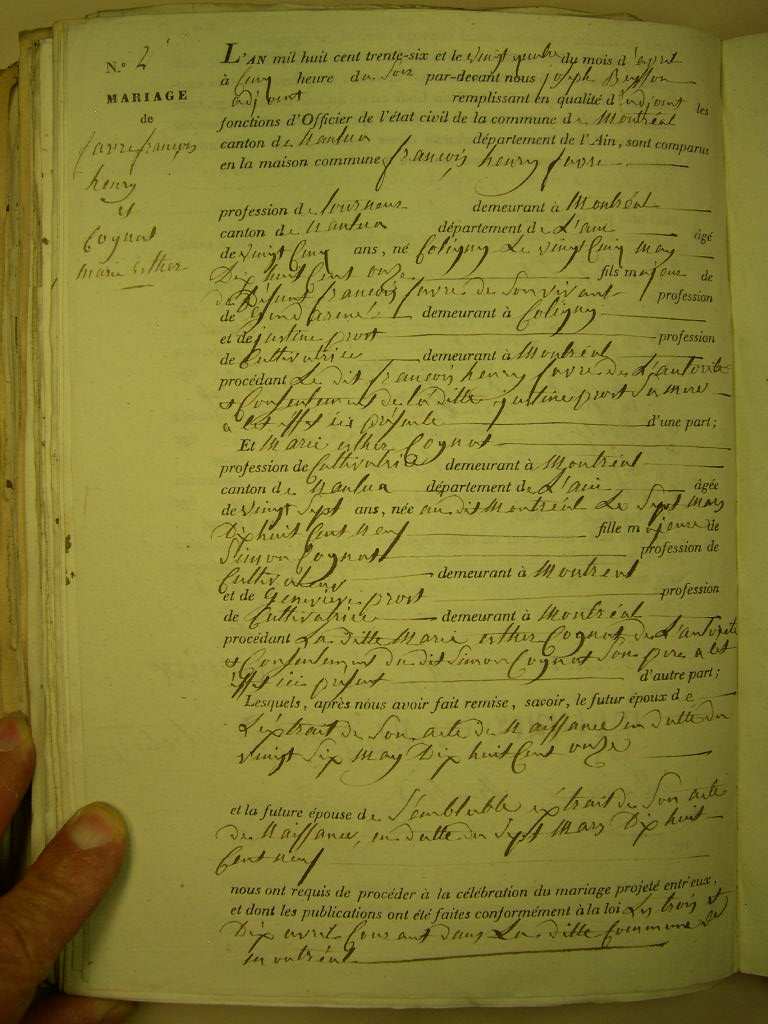 N.º 2
MARIAGE
de
favre françois
henry
et
Cognat
marie esther
L'AN mil huit cent trente-six et le vingt quatre du mois d'avril
à Cinq heure du Soir par-devant nous joseph
adjoint remplissant en qualité d'adjoint les
fonctions d'Officier de l'état civil de la commune de Montréal
canton de Nantua département de l'Ain, sont comparus
en la maison commune françois henry favre
profession de tourneur demeurant à Montréal
canton de Nantua département de L'ain âgé
de vingt Cinq ans, né Coligny Le vingt Cinq may
Dix huit Cent onze fils majeur de
de Défunt françois favre de Son vivant profession
de Gendarme demeurant à Coligny
et de justine prost profession
de Cultivatrice demeurant à Montréal
procédant Le dit françois henry favre de L'autorité
et Consentement de la ditte justine prost Sa mere
a Cet effet ici présente d'une part;
Et Marie esther Cognat
profession de Cultivatrice demeurant à Montréal
canton de Nantua département de L'ain âgée
de vingt Sept ans, née au dit Montréal Le Sept Mars
Dix huit Cent neuf fille majeure de
Simon Cognat profession de
Cultivateur demeurant à Montréal
et de Genevieve prost profession
de Cultivatrice demeurant à Montréal
procédant La ditte Marie esther Cognat de L'autorité
et Consentement du dit Simon Cognat Son pere a Cet
effet ici présent d'autre part;
Lesquels, après nous avoir fait remise, savoir, le futur époux de
L'éxtrait de Son acte de Naissance en datte du
vingt Six may Dix huit Cent onze
et la future épouse de Semblable éxtrait de Son acte
de Naissance, en datte du Sept Mars Dix huit
Cent neuf
nous ont requis de procéder à la célébration du mariage projeté entr'eux,
et dont les publications ont été faites conformément à la loi Les trois et
Dix avril Courant dans La ditte Commune de
Montréal